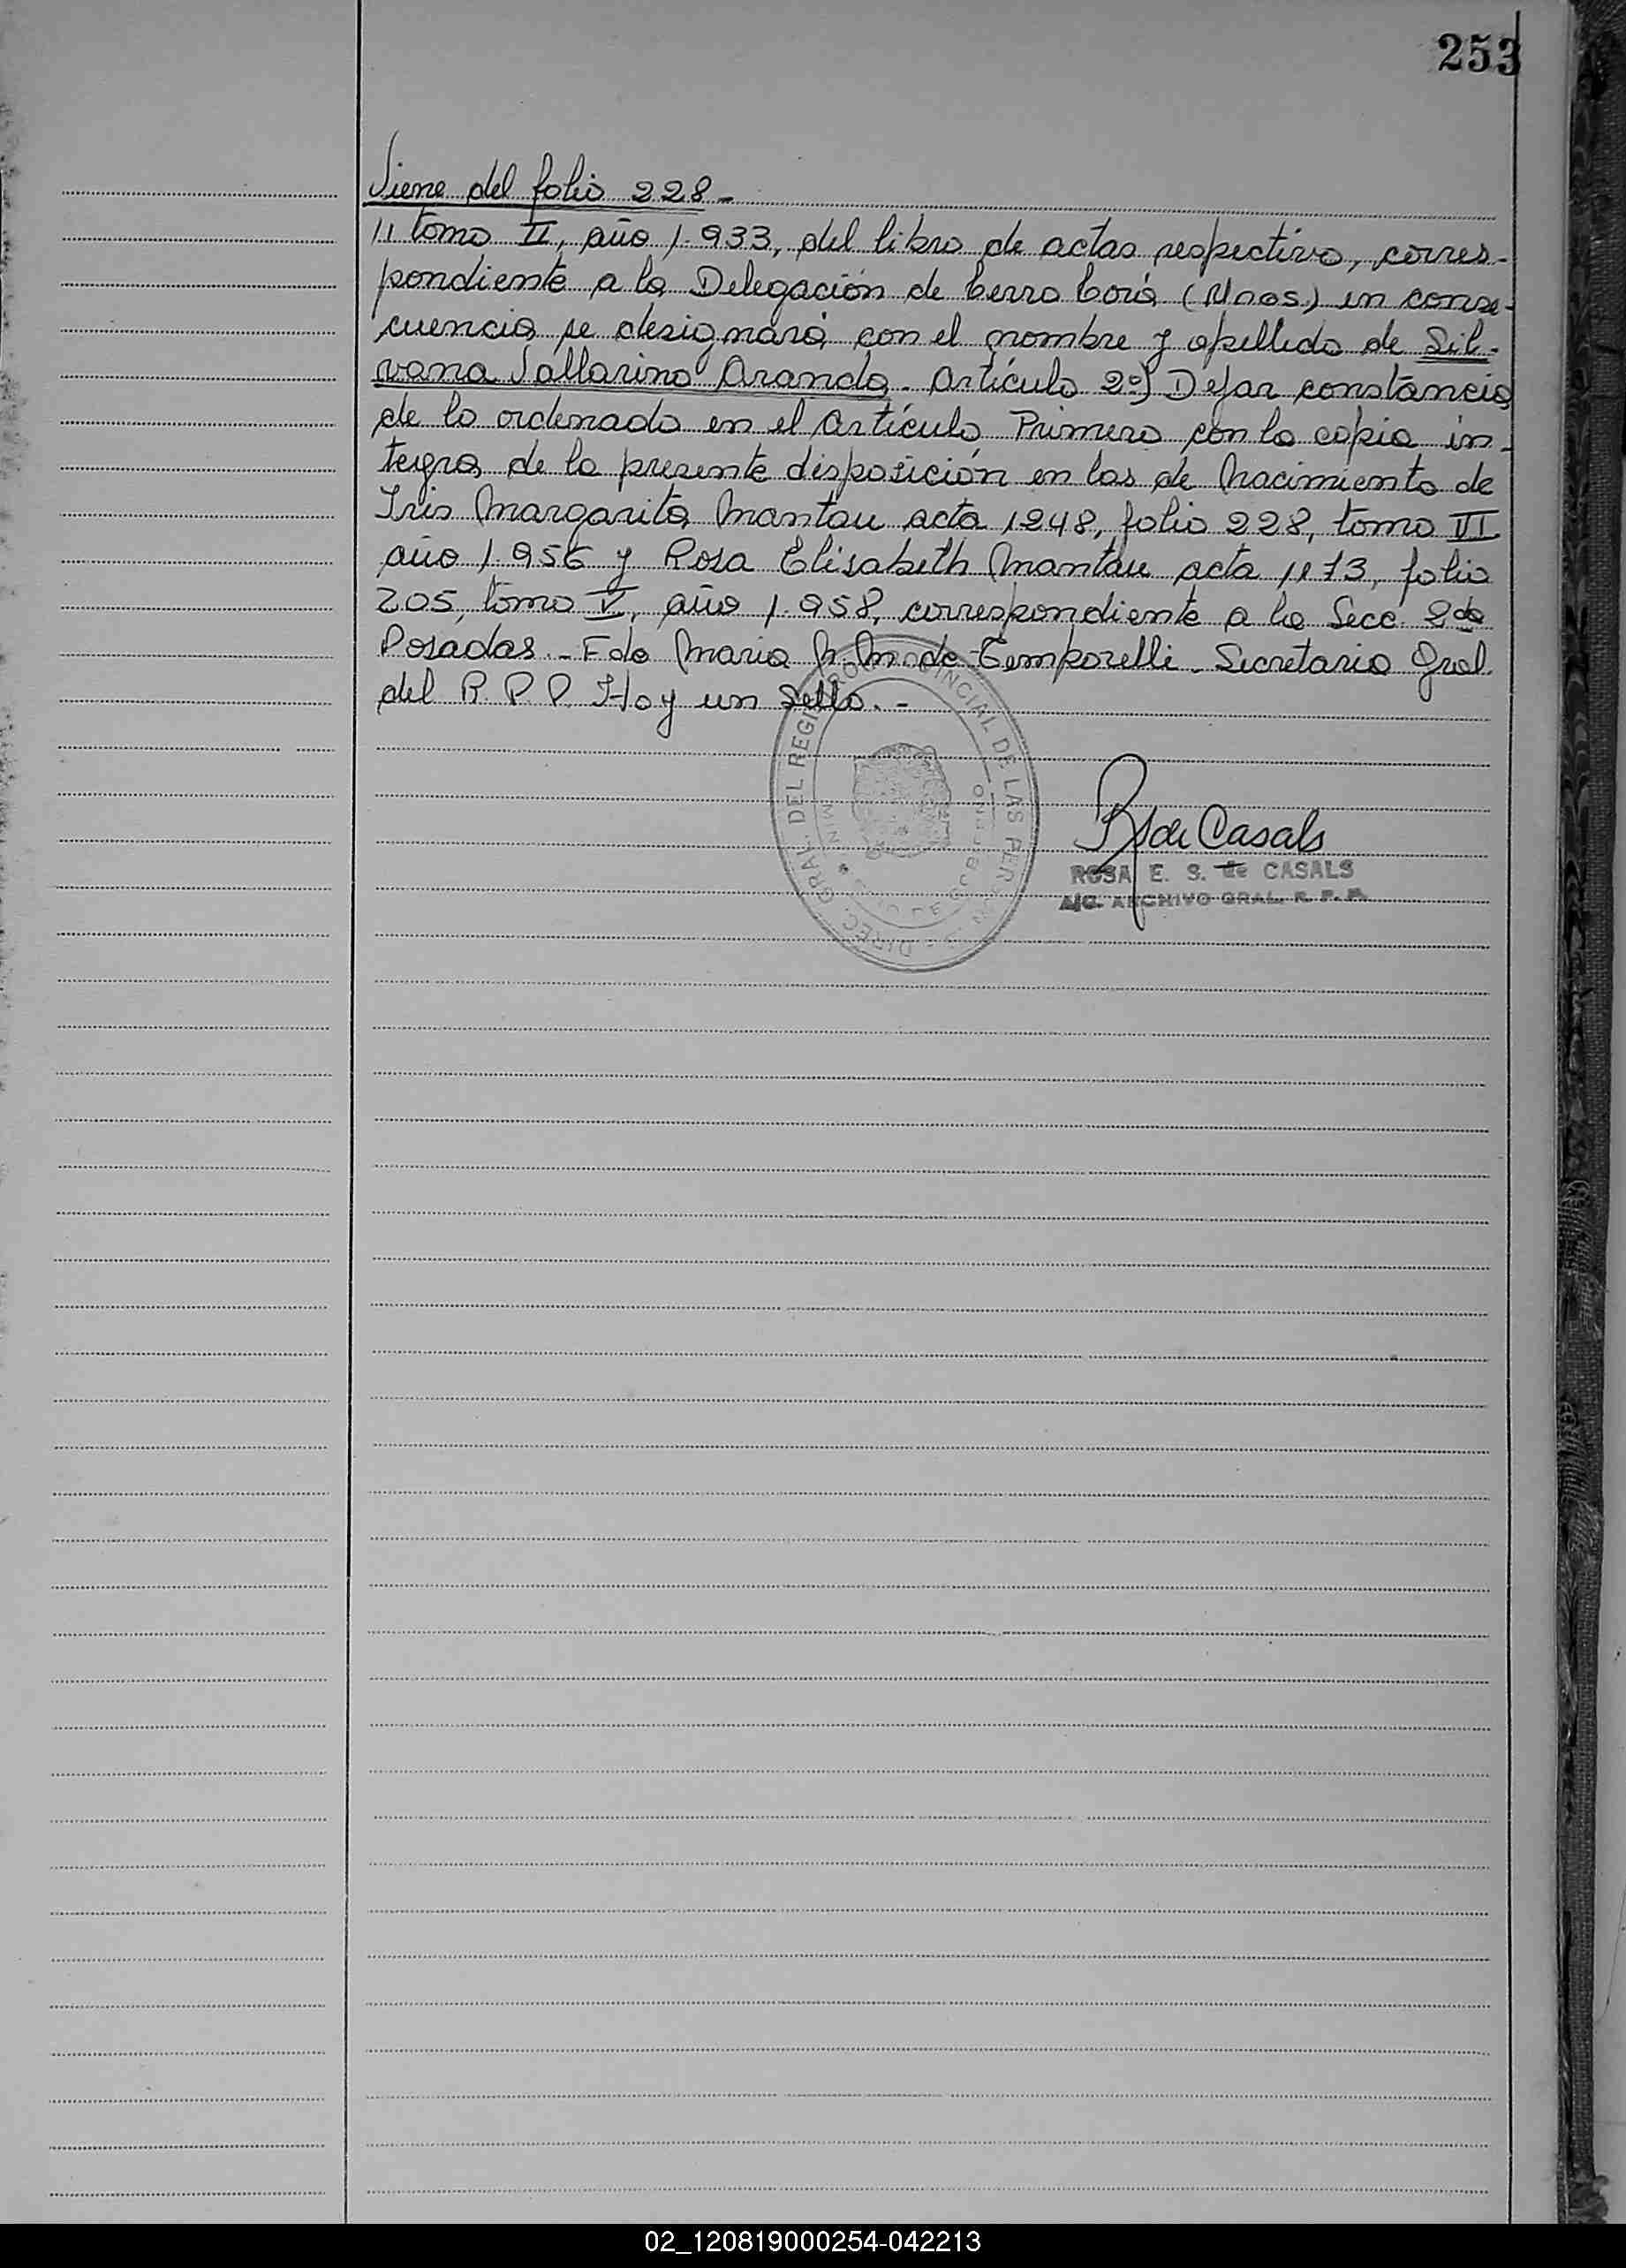 253
Viene del folio 228-
11 tomo II, año 1.933, del libro de actas respectivo, corres-
pondiente a la Delegación de Cerro Corá (Mnes.) en conse-
cuencia, se designará, con el nombre y apellido de Sil-
vana Vallarino Aranda. Artículo 2º) Dejar constancia
de lo ordenado en el Artículo Primero con la copia ín-
tegra de la presente disposición en las de Nacimiento de
Iris Margarita Mantau acta 1248, folio 228, tomo VI
año 1.956 y Rosa Elisabeth Mantau acta 1173, folio
205, tomo V, año 1.958, correspondiente a la Secc. 2da
Posadas.- Fdo Maria M. de Temporelli - Secretaria Gral.
del R.P.P. Hay un Sello.-
DIREC. GRAL. DEL REGISTRO PROVINCIAL DE LAS
RS de Casals
ROSA E. S. de CASALS
A/C. ARCHIVO GRAL. R. P. P.
02_120819000254-042213